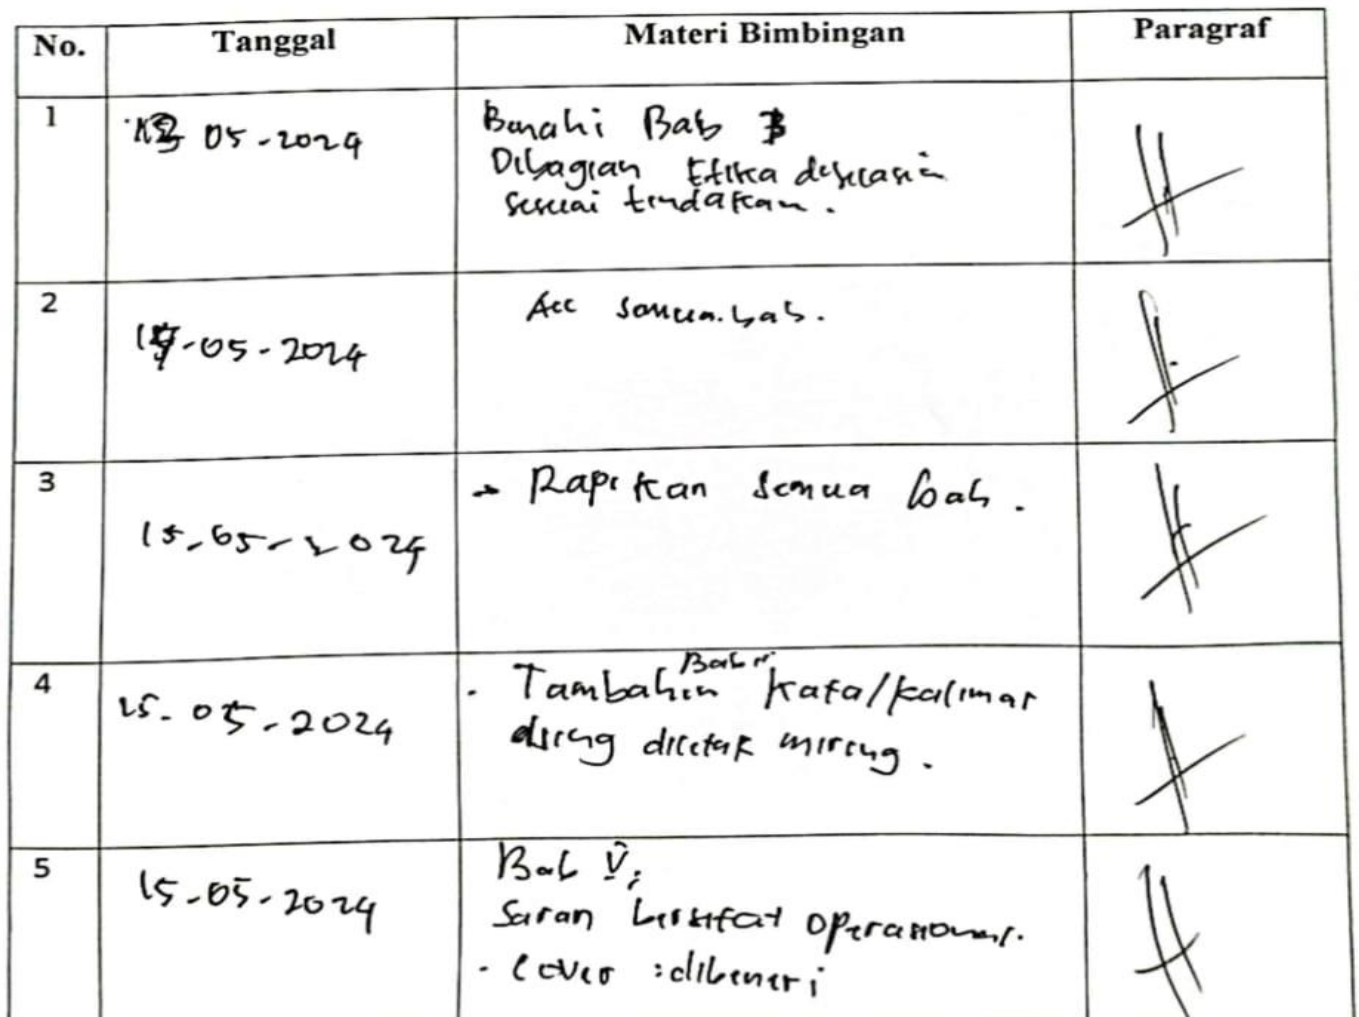 No. Tanggal Materi Bimbingan Paragraf
1 05-2024 Bab 3
Dibagian Etika
sesuai tindakan.
2 -05-2024 Acc semua bab.
3 15-05-2024 Rapikan semua bab.
4 15-05-2024 Bab
Tambahin kata/kalimat
dicetak miring.
5 15-05-2024 Bab V;
Saran bersifat operasional.
- Cover : dibeneri